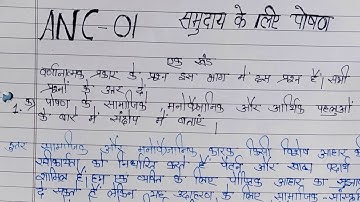 ANC-01 समुदाय के लिए पोषण
एक खंड
वर्णनात्मक प्रकार के प्रश्न इस भाग में दस प्रश्न हैं। सभी
प्रश्नों के उत्तर दें
1. क) पोषण के सामाजिक, मनोवैज्ञानिक और आर्थिक पहलुओं
के बारे में संक्षेप में बताएं।
उत्तर सामाजिक और मनोवैज्ञानिक कारक किसी विशेष आहार के
स्वीकार्यता को निर्धारित करते हैं पेटर्न और खाद्य पदार्थ
शामिल हैं। हम एक व्यक्ति के लिए पौष्टिक आहार का सुझाव
दे सकते हैं लेकिन उदाहरण के लिए सामाजिक-